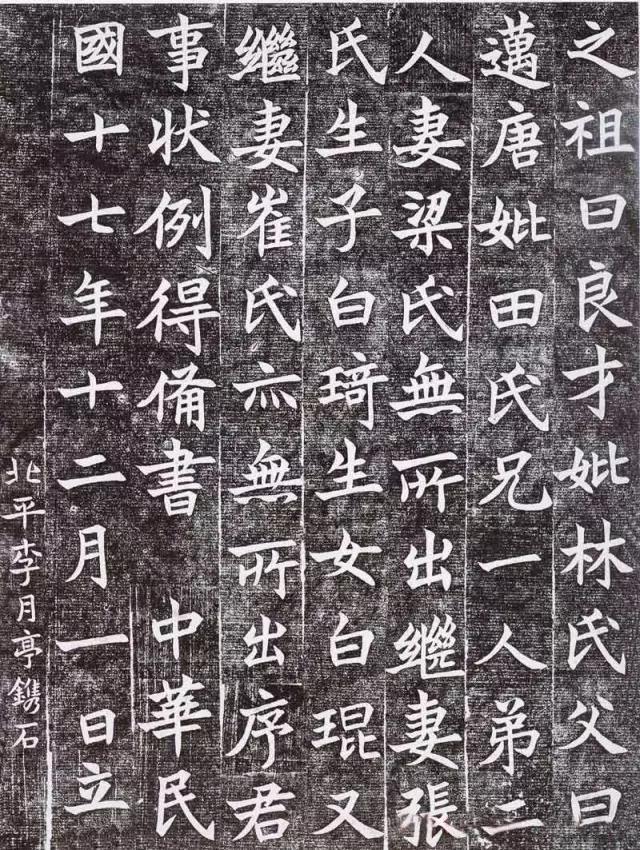 之祖曰良才妣林氏父曰
邁唐妣田氏兄一人弟二
人妻梁氏無所出繼妻張
氏生子白琦生女白琨又
繼妻崔氏亦無所出序君
事狀例得備書 中華民
國十七年十二月一日立
北平李月亭鐫石